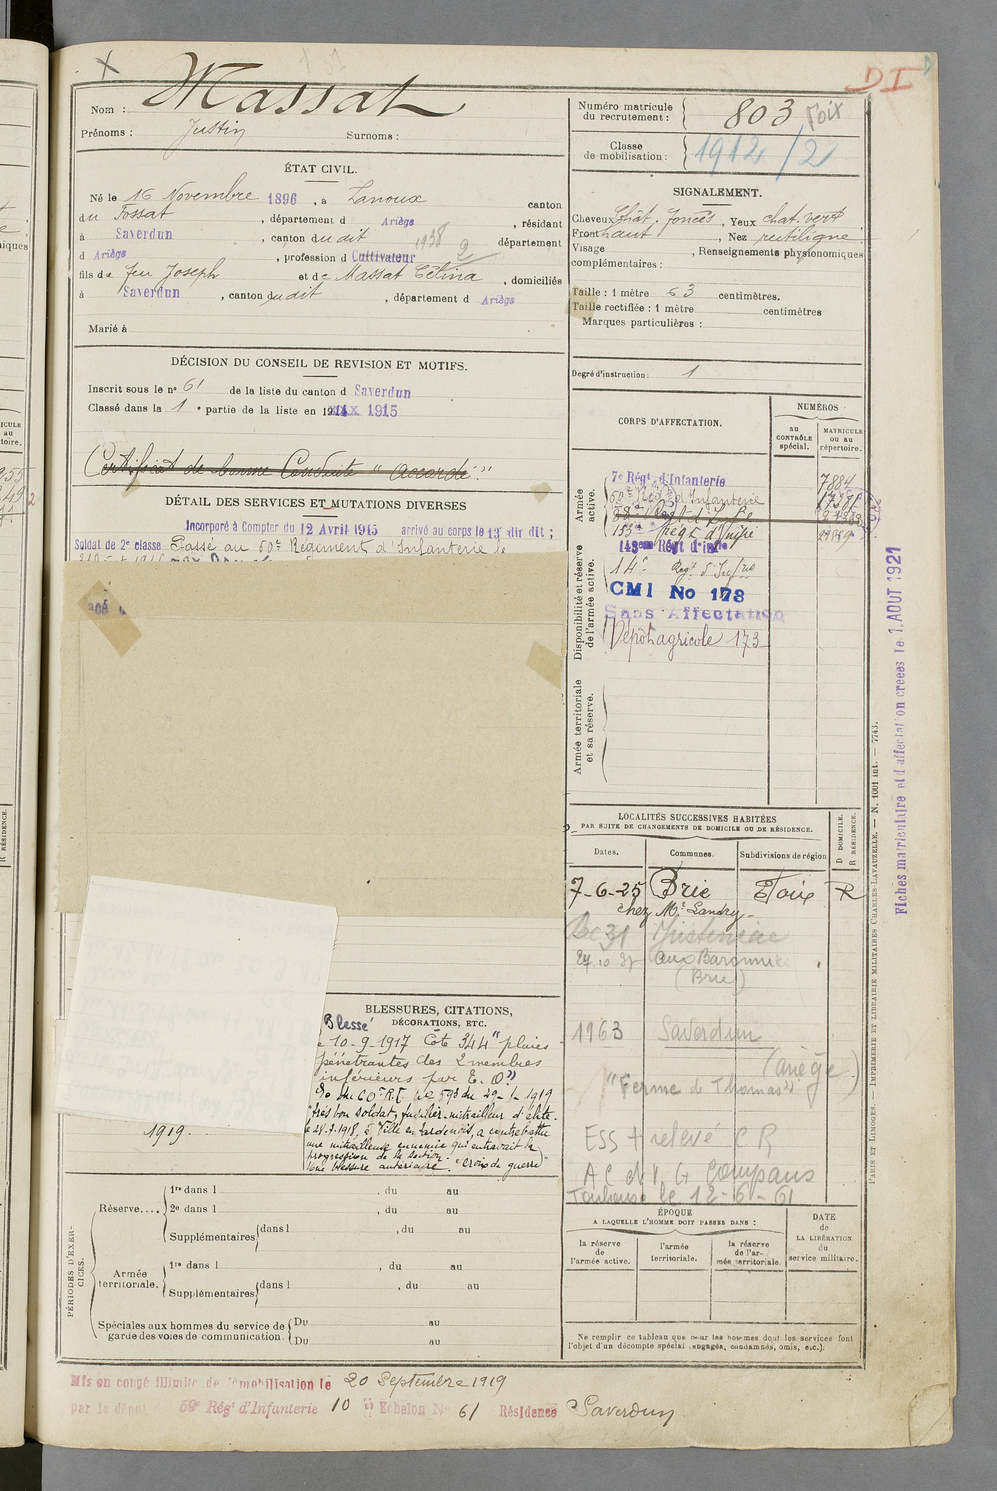 Nom : Massat
Prénoms : Justin Surnoms :
ÉTAT CIVIL.
Né le 16 Novembre 1896, à Lanoux canton
du Fossat, département d Ariège, résidant
à Saverdun, canton dudit 1938 2 département
d Ariège, profession d Cultivateur
fils de feu Joseph et de Massat Célina, domiciliés
à Saverdun, canton dudit, département d Ariège
Marié à
DÉCISION DU CONSEIL DE REVISION ET MOTIFS.
Inscrit sous le n° 61 de la liste du canton d Saverdun
Classé dans la 1e partie de la liste en 1915
Certificat de bonne Conduite "Accordé"
DÉTAIL DES SERVICES ET MUTATIONS DIVERSES
Incorporé à Compter du 12 Avril 1915 arrivé au corps le 13 dir dit ;
Soldat de 2e classe Passé au 60e Régiment d'Infanterie le
1919.
BLESSURES, CITATIONS,
DÉCORATIONS, ETC.
Blessé
le 10-9-1917 Côte 344 "plaies
pénétrantes des 2 membres
inférieurs par E. O")
du 60e R.I. N° 593 du 29-1-1919
"très bon soldat, fusilier-mitrailleur d'élite.
à Ville en Tardenois, a contrebattu
une mitrailleuse ennemie qui entravait la
progression de la section.
Une blessure antérieure. "Croix de guerre"
PÉRIODES D'EXERCICES.
Réserve....
1re dans l , du au
2e dans l , du au
Supplémentaires dans l , du au
Armée territoriale.
1re dans l , du au
Supplémentaires dans l , du au
Spéciales aux hommes du service de garde des voies de communication.
Du au
Du au
Mis en congé illimité de démobilisation le 20 Septembre 1919
par le dépôt 59e Régt d'Infanterie 10 e Echelon N° 61 Résidence Saverdun
DI
Numéro matricule du recrutement : 803 Foix
Classe de mobilisation : 1912/2
SIGNALEMENT.
Cheveux Chât. foncés, Yeux chat. vert
Front haut, Nez rectiligne
Visage , Renseignements physionomiques
complémentaires :
Taille : 1 mètre 63 centimètres.
Taille rectifiée : 1 mètre centimètres
Marques particulières :
Degré d'instruction : 1
CORPS D'AFFECTATION.
NUMÉROS
au CONTRÔLE spécial.
MATRICULE ou au répertoire.
Armée active.
7e Régt d'Infanterie 7884
60e Régt d'Infanterie 17381
153e Régt d'Infrie
Disponibilité et réserve de l'armée active.
143eme Régt d'infie
14e Régt d'Infrie
CMI No 178
Sans Affectation
Dépôt agricole 173
Armée territoriale et sa réserve.
LOCALITÉS SUCCESSIVES HABITÉES
PAR SUITE DE CHANGEMENTS DE DOMICILE OU DE RÉSIDENCE.
Dates. Communes. Subdivisions de région D DOMICILE. R RÉSIDENCE.
7-6-25 Brie Foix R
chez Mr Landry
Justiniac
27.10.37 aux Baronnies
(Brie)
1963 Saverdun
(Ariège)
"Ferme de Thomas"
ESS relevé CR
Toulouse le 12-6-61
ÉPOQUE
A LAQUELLE L'HOMME DOIT PASSER DANS :
la réserve de l'armée active.
l'armée territoriale.
la réserve de l'armée territoriale.
DATE DE LA LIBÉRATION du service militaire.
Ne remplir ce tableau que pour les hommes dont les services font
l'objet d'un décompte spécial (engagés, condamnés, omis, etc.).
PARIS ET LIMOGES. — IMPRIMERIE ET LIBRAIRIE MILITAIRES CHARLES-LAVAUZELLE. — N. 1001 int. — 7743.
Fiches matriculaire et d'affectation créées le 1 AOUT 1921